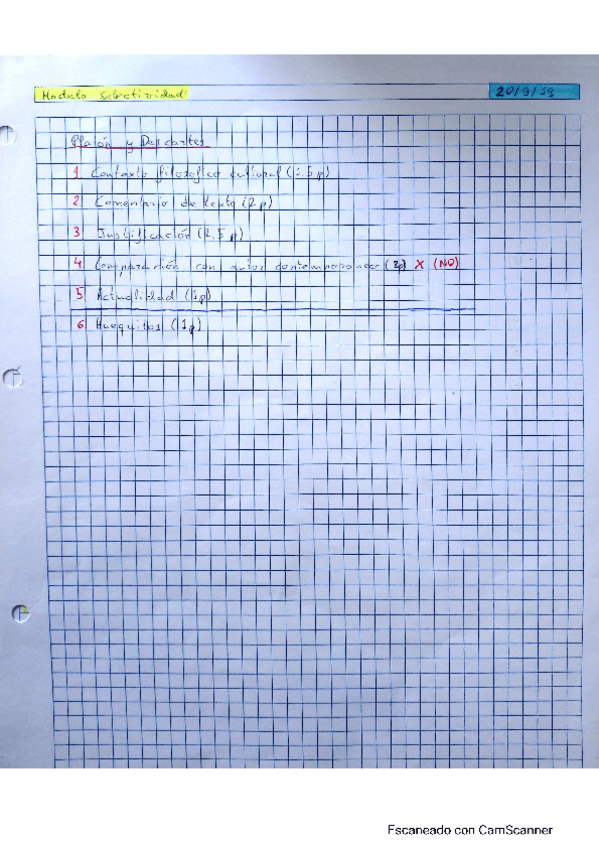 Modelo Selectividad
20/9/19
Platón y Descartes
1 Contexto filosófico cultural (1.5 p)
2 Comentario de texto (2 p)
3 Justificación (2,5 p)
4 Comparación con autor contemporáneo (2p) X (NO)
5 Actualidad (1p)
6 Huequitos (1p)
Escaneado con CamScanner